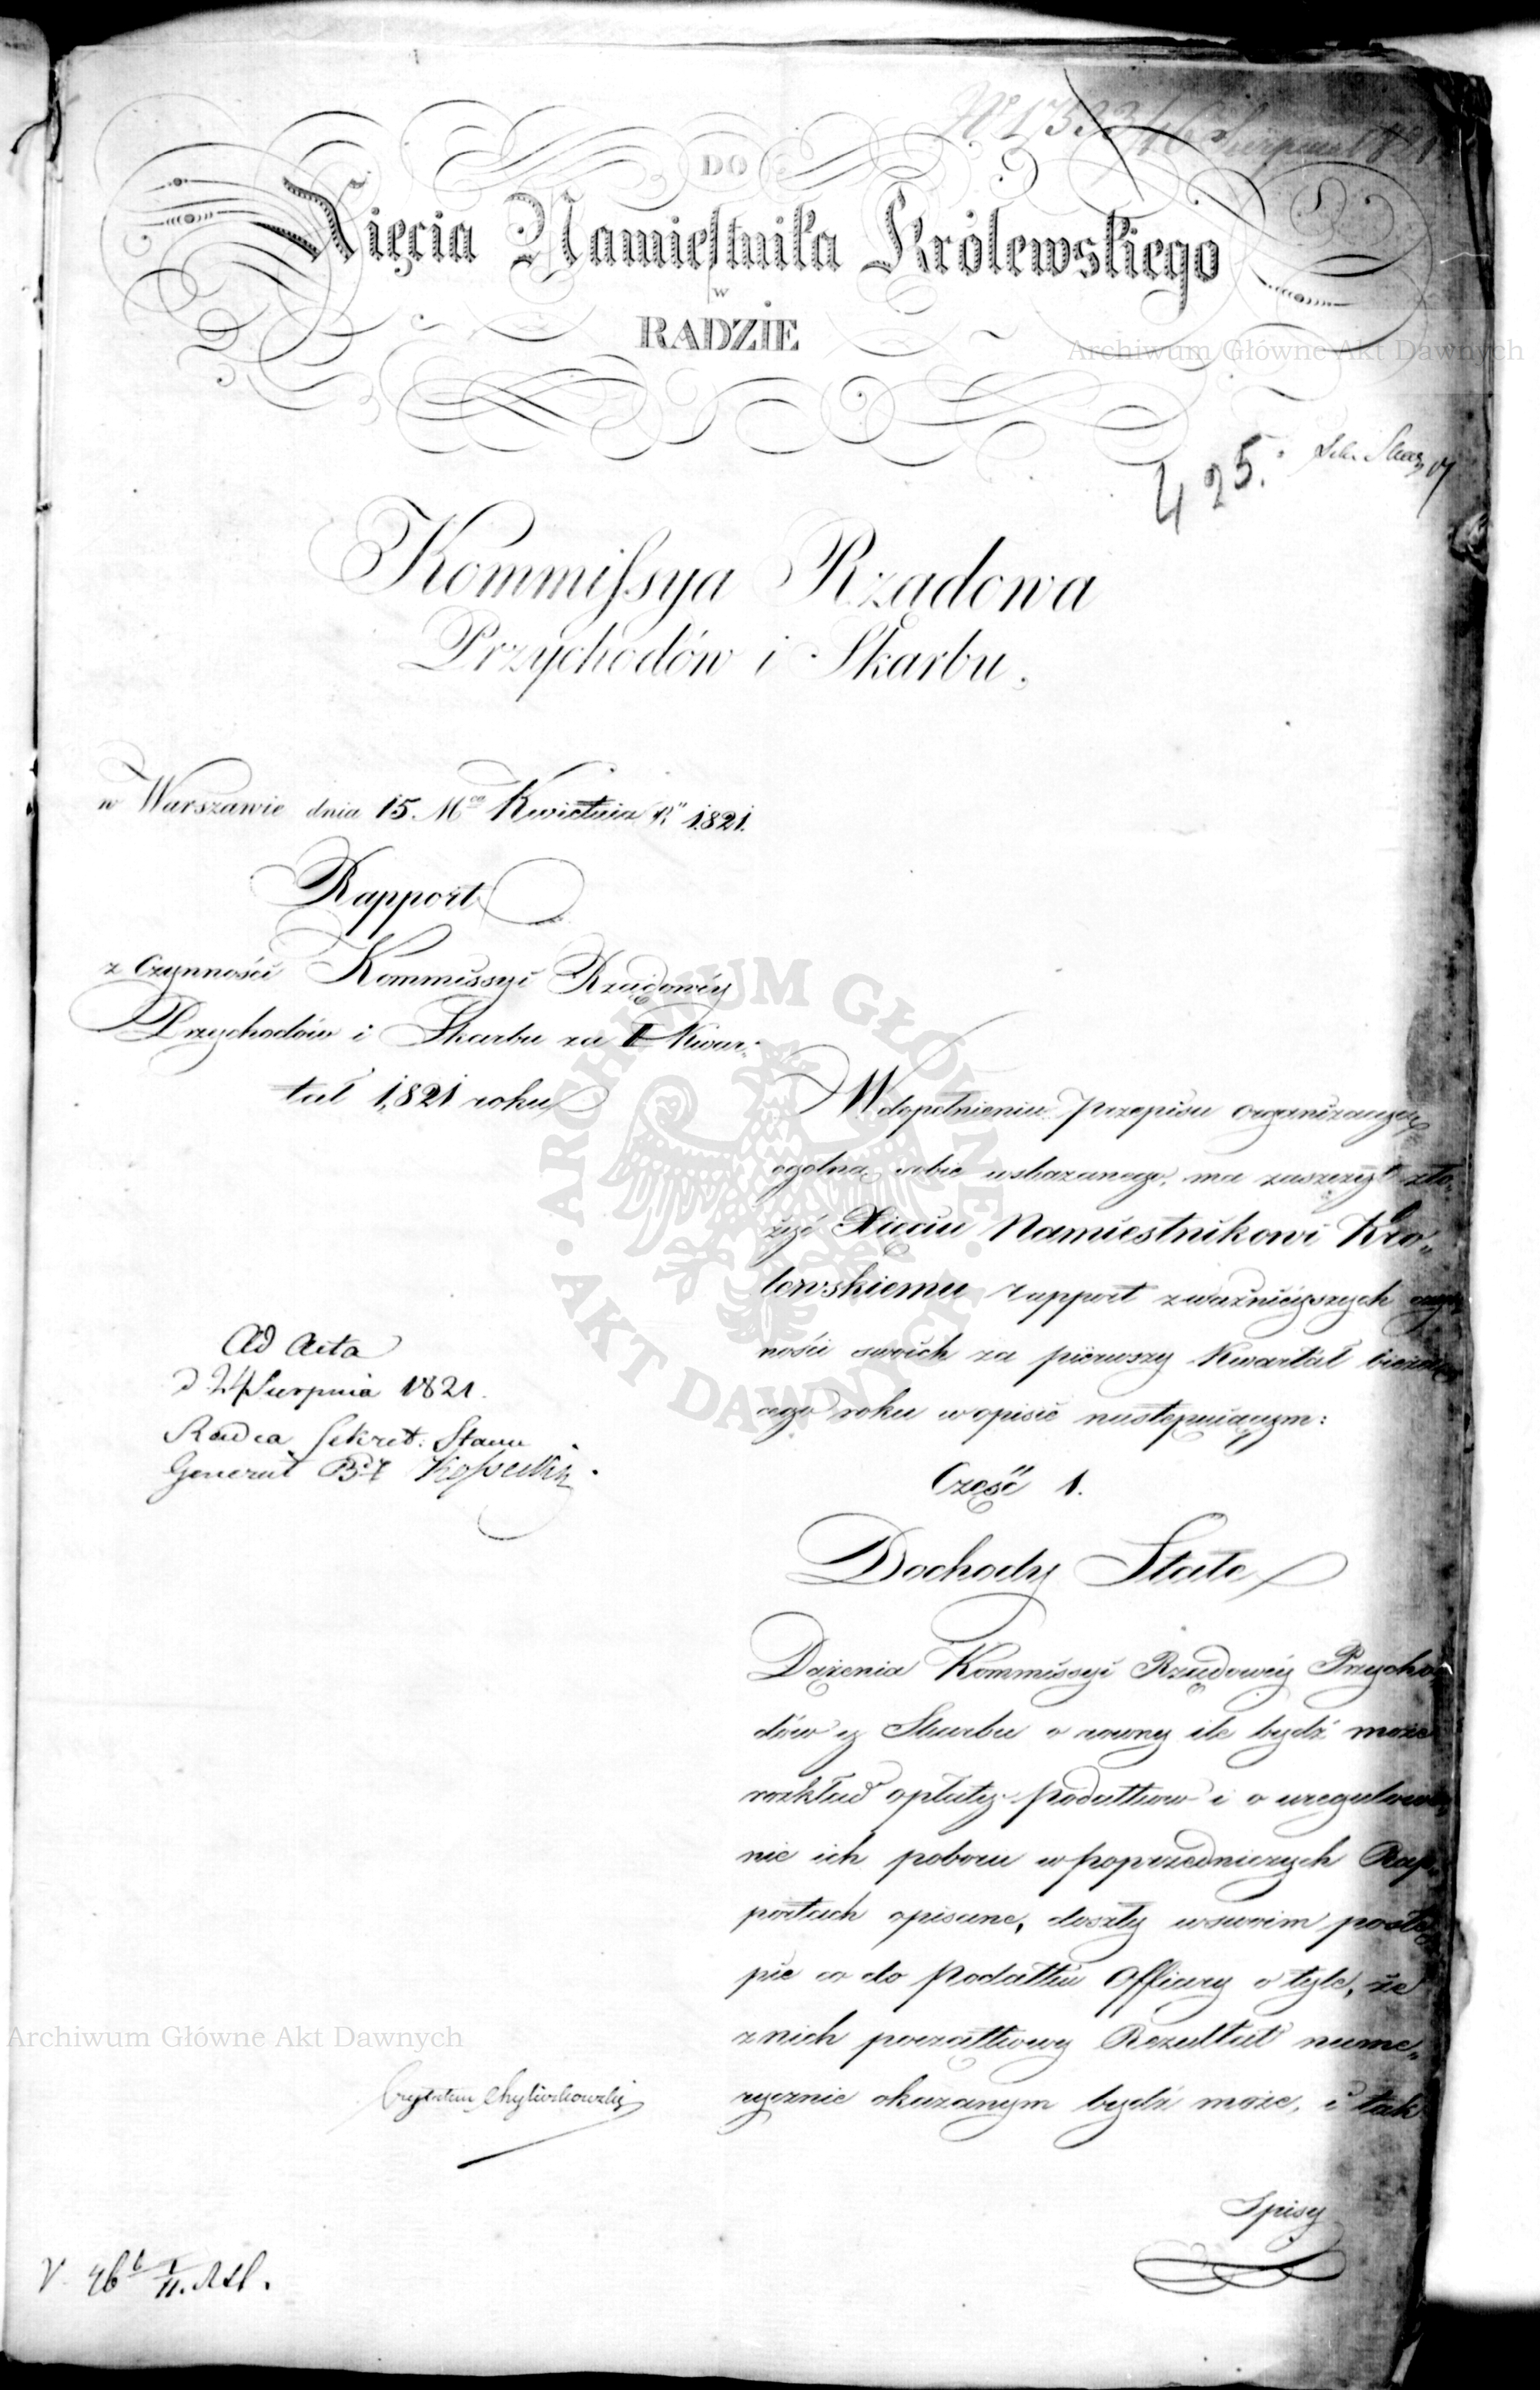 DO
Xięcia Namiestnika Królewskiego
w
RADZIE
425.
Kommissya Rządowa
Przychodów i Skarbu.
w Warszawie dnia 15. Mca Kwietnia R. 1821.
Rapport
z Czynności Kommissyi Rządowéy
Przychodów i Skarbu za I Kwar-
tał 1821 roku
W dopełnieniu Przepisu organizacyą
ogólną sobie wskazanego, ma zaszczyt zło-
żyć Xięciu Namiestnikowi Kró-
lewskiemu rapport z ważnieyszych czyn-
ności swoich za pierwszy Kwartał bieżą-
cego roku w opisie następuiącym:
Ad Acta
d 24 Sierpnia 1821.
Radca Sekret: Stanu
Generał Kossecki
Część 1.
Dochody Stałe
Dążenia Kommissyi Rządowéy Przycho-
dów y Skarbu o równy ile bydź może
rozkład opłaty podatków i o uregulowa-
nie ich poboru w poprzedniczych Rap-
portach opisane, doszły w swoim postę-
pie co do Podatku Offiary o tyle, że
z nich początkowy Rezultat nume-
rycznie okazanym bydź może, i tak
Spisy
Archiwum Główne Akt Dawnych
Archiwum Główne Akt Dawnych
ARCHIWUM GŁÓWNE AKT DAWNYCH